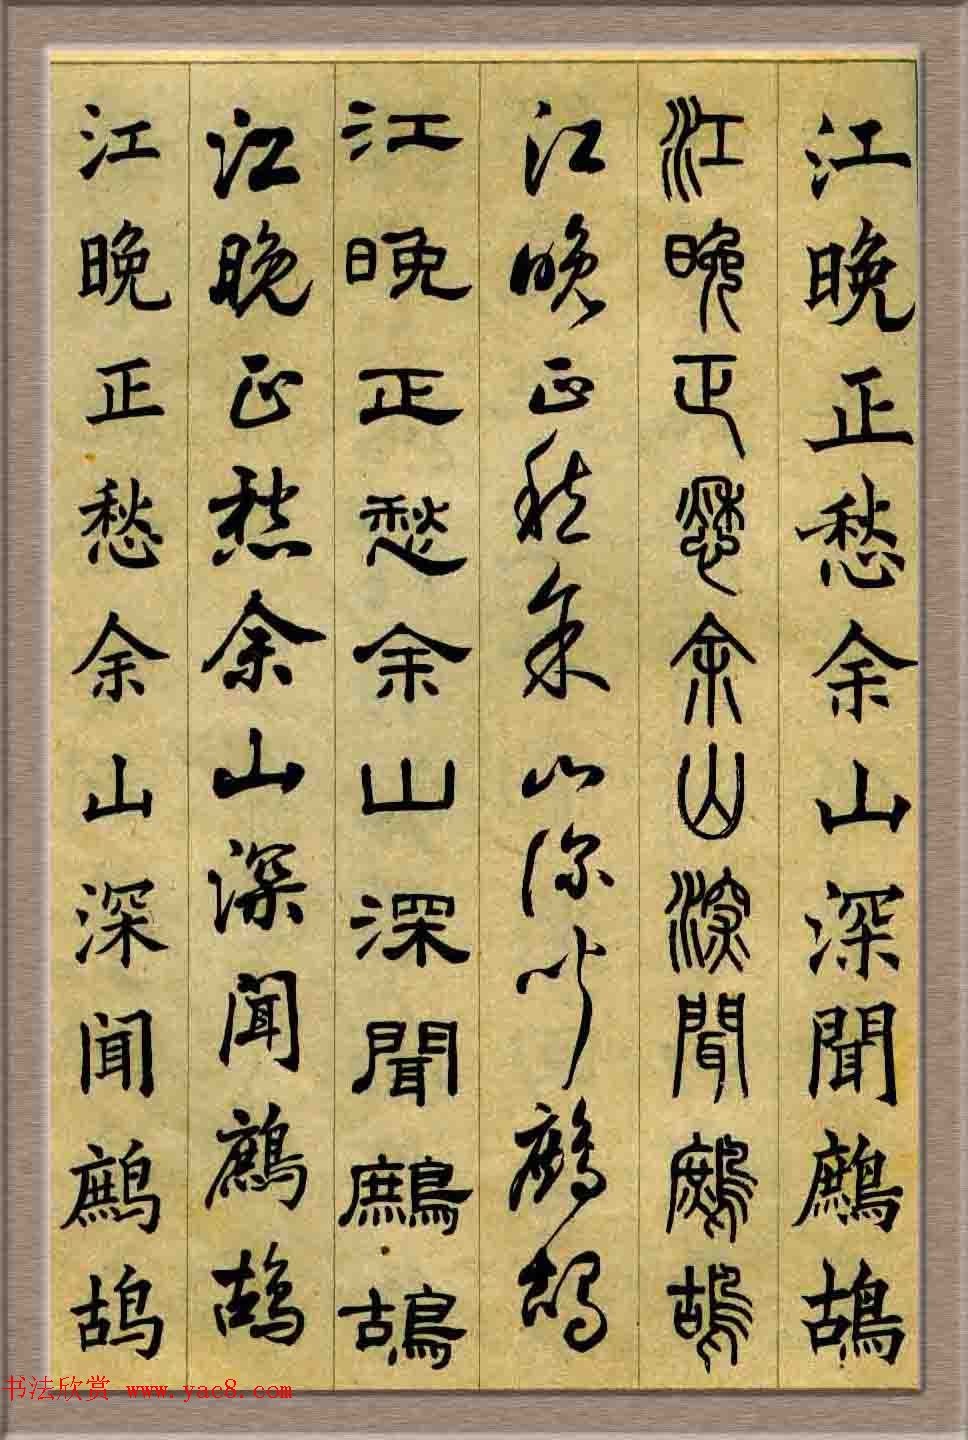 江晚正愁余山深聞鷓鴣
江晚正愁余山深聞鷓鴣
江晚正愁余山深闻鹧鸪
江晚正愁余山深聞鷓鴣
江晚正愁余山深闻鹧鸪
江晚正愁余山深闻鹧鸪
书法欣赏 www.yac8.com